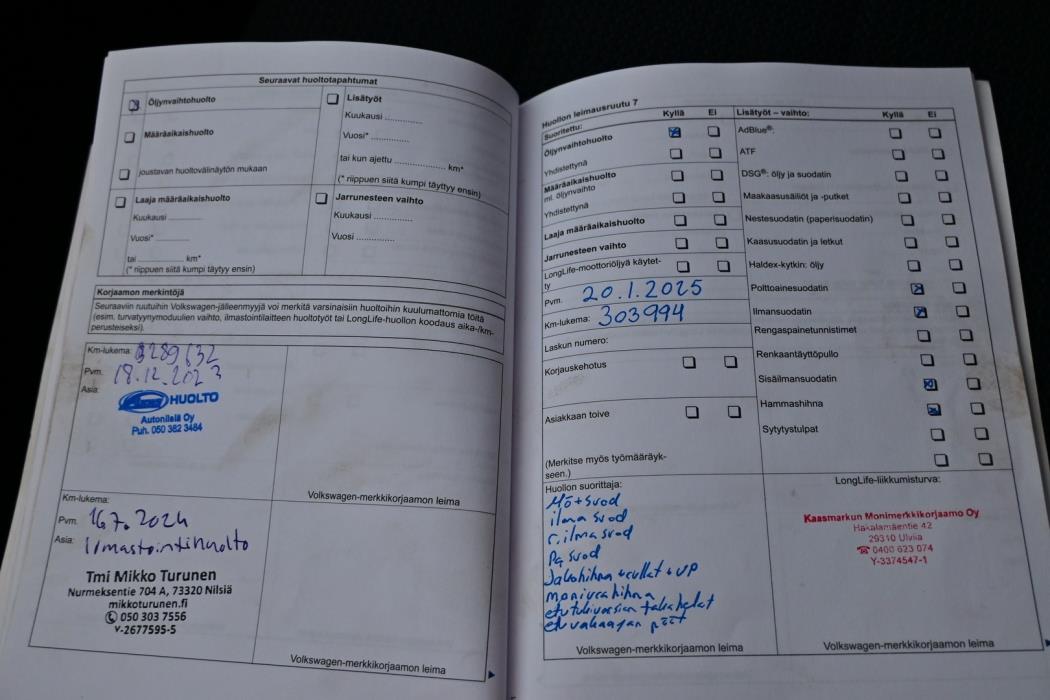 Seuraavat huoltotapahtumat
Öljynvaihtohuolto
Määräaikaishuolto
joustavan huoltovälinäytön mukaan
Laaja määräaikaishuolto
Kuukausi ............
Vuosi* ............
tai ............ km*
(* riippuen siitä kumpi täytyy ensin)
Lisätyöt
Kuukausi ............
Vuosi* ............
tai kun ajettu ................ km*
(* riippuen siitä kumpi täyttyy ensin)
Jarrunesteen vaihto
Kuukausi ............
Vuosi ............
Korjaamon merkintöjä
Seuraaviin ruutuihin Volkswagen-jälleenmyyjä voi merkitä varsinaisiin huoltoihin kuulumattomia töitä
(esim. turvatyynymoduulien vaihto, ilmastointilaitteen huoltotyöt tai LongLife-huollon koodaus aika-/km-
perusteiseksi).
Km-lukema: 289632
Pvm. 18.12.2023
Asia:
HUOLTO
Autonilsiä Oy
Puh. 050 382 3484
Volkswagen-merkkikorjaamon leima
Km-lukema:
Pvm. 16.7.2024
Asia: Ilmastointihuolto
Tmi Mikko Turunen
Nurmeksentie 704 A, 73320 Nilsiä
mikkoturunen.fi
050 303 7556
Y-2677595-5
Volkswagen-merkkikorjaamon leima
Huollon leimausruutu 7
Suoritettu: Kyllä Ei
Öljynvaihtohuolto
Yhdistettynä
Määräaikaishuolto
ml. öljynvaihto
Yhdistettynä
Laaja määräaikaishuolto
Jarrunesteen vaihto
LongLife-moottoriöljyä käytet-
ty
Pvm. 20.1.2025
Km-lukema: 303994
Laskun numero:
Korjauskehotus
Asiakkaan toive
(Merkitse myös työmääräyk-
seen.)
Lisätyöt – vaihto: Kyllä Ei
AdBlue®:
ATF
DSG®: öljy ja suodatin
Maakaasusäiliöt ja -putket
Nestesuodatin (paperisuodatin)
Kaasusuodatin ja letkut
Haldex-kytkin: öljy
Polttoainesuodatin
Ilmansuodatin
Rengaspainetunnistimet
Renkaantäyttöpullo
Sisäilmansuodatin
Hammashihna
Sytytystulpat
Huollon suorittaja:
Mö+svod
ilma svod
r.ilma svod
Pa svod
Jakohihna + rullat + VP
moniurahihna
etutukivarsien takahelat
et vakaajan päät
Volkswagen-merkkikorjaamon leima
LongLife-liikkumisturva:
Kaasmarkun Monimerkkikorjaamo Oy
Hakalamäentie 42
29310 Ulvila
0400 623 074
Y-3374547-1
Volkswagen-merkkikorjaamon leima